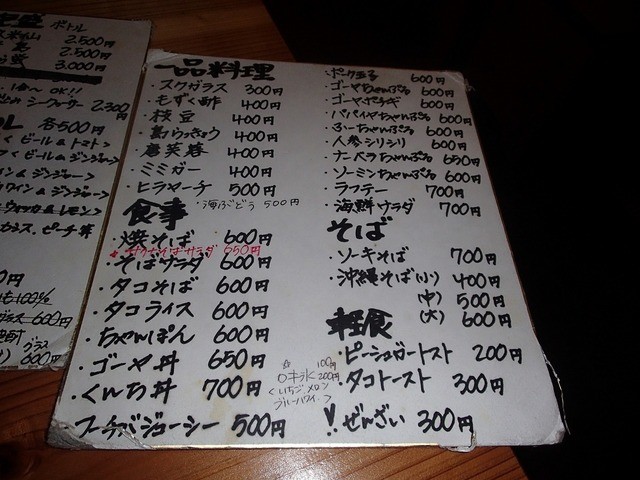 ボトル
2,500円
2,500円
3,000円
OK!!
シークヮーサー 2,300円
各500円
ビール&トマト>
ビール&ジンジャー>
ン&ジンジャー>
ワイン&ジンジャー>
ウォッカ&レモン>
100%
600円
グラス
600円
一品料理
・スクガラス 300円
・もずく酢 400円
・枝豆 400円
・島らっきょう 400円
・唐芙蓉 400円
・ミミガー 400円
・ヒラヤーチ 500円
・海ぶどう 500円
食事
・焼そば 600円
サラダ 650円
・そばサラダ 600円
・タコそば 600円
・タコライス 600円
・ちゃんぽん 600円
・ゴーヤ丼 650円
・くんち丼 700円
フーチバジューシー 500円
・ポーク玉子 600円
・ゴーヤちゃんぷる 600円
・ゴーヤ 600円
・パパイヤちゃんぷる 600円
・ふーちゃんぷる 600円
・人参シリシリ 600円
・ナーベラちゃんぷる 650円
・ソーミンちゃんぷる 600円
・ラフテー 700円
・海鮮サラダ 700円
そば
・ソーキそば 700円
・沖縄そば(小) 400円
(中) 500円
(大) 600円
軽食
・ピーシュガートースト 200円
・タコトースト 300円
・ぜんざい 300円
100円
カキ氷 200円
<いちご メロン
ブルーハワイ>